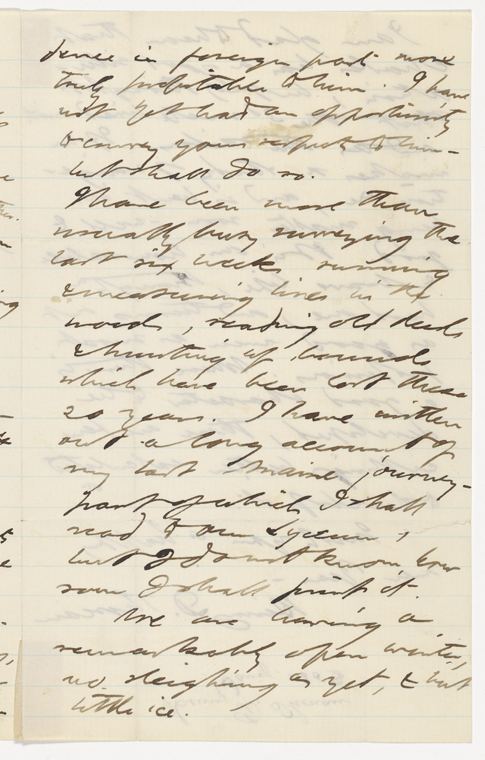 dence in foreign parts more
truly profitable to him. I have
not yet had an opportunity
to convey your respects to him—
but shall do so.
I have been more than
usually busy surveying the
last six weeks, running
& measuring lines in the
woods, reading old deeds
& hunting up bounds
which have been lost these
20 years. I have written
out a long account of
my last Maine journey—
part of which I shall
read to our Lyceum;
but I do not know how
soon I shall print it.
We are having a
remarkably open winter,
no sleighing as yet, & but
little ice.